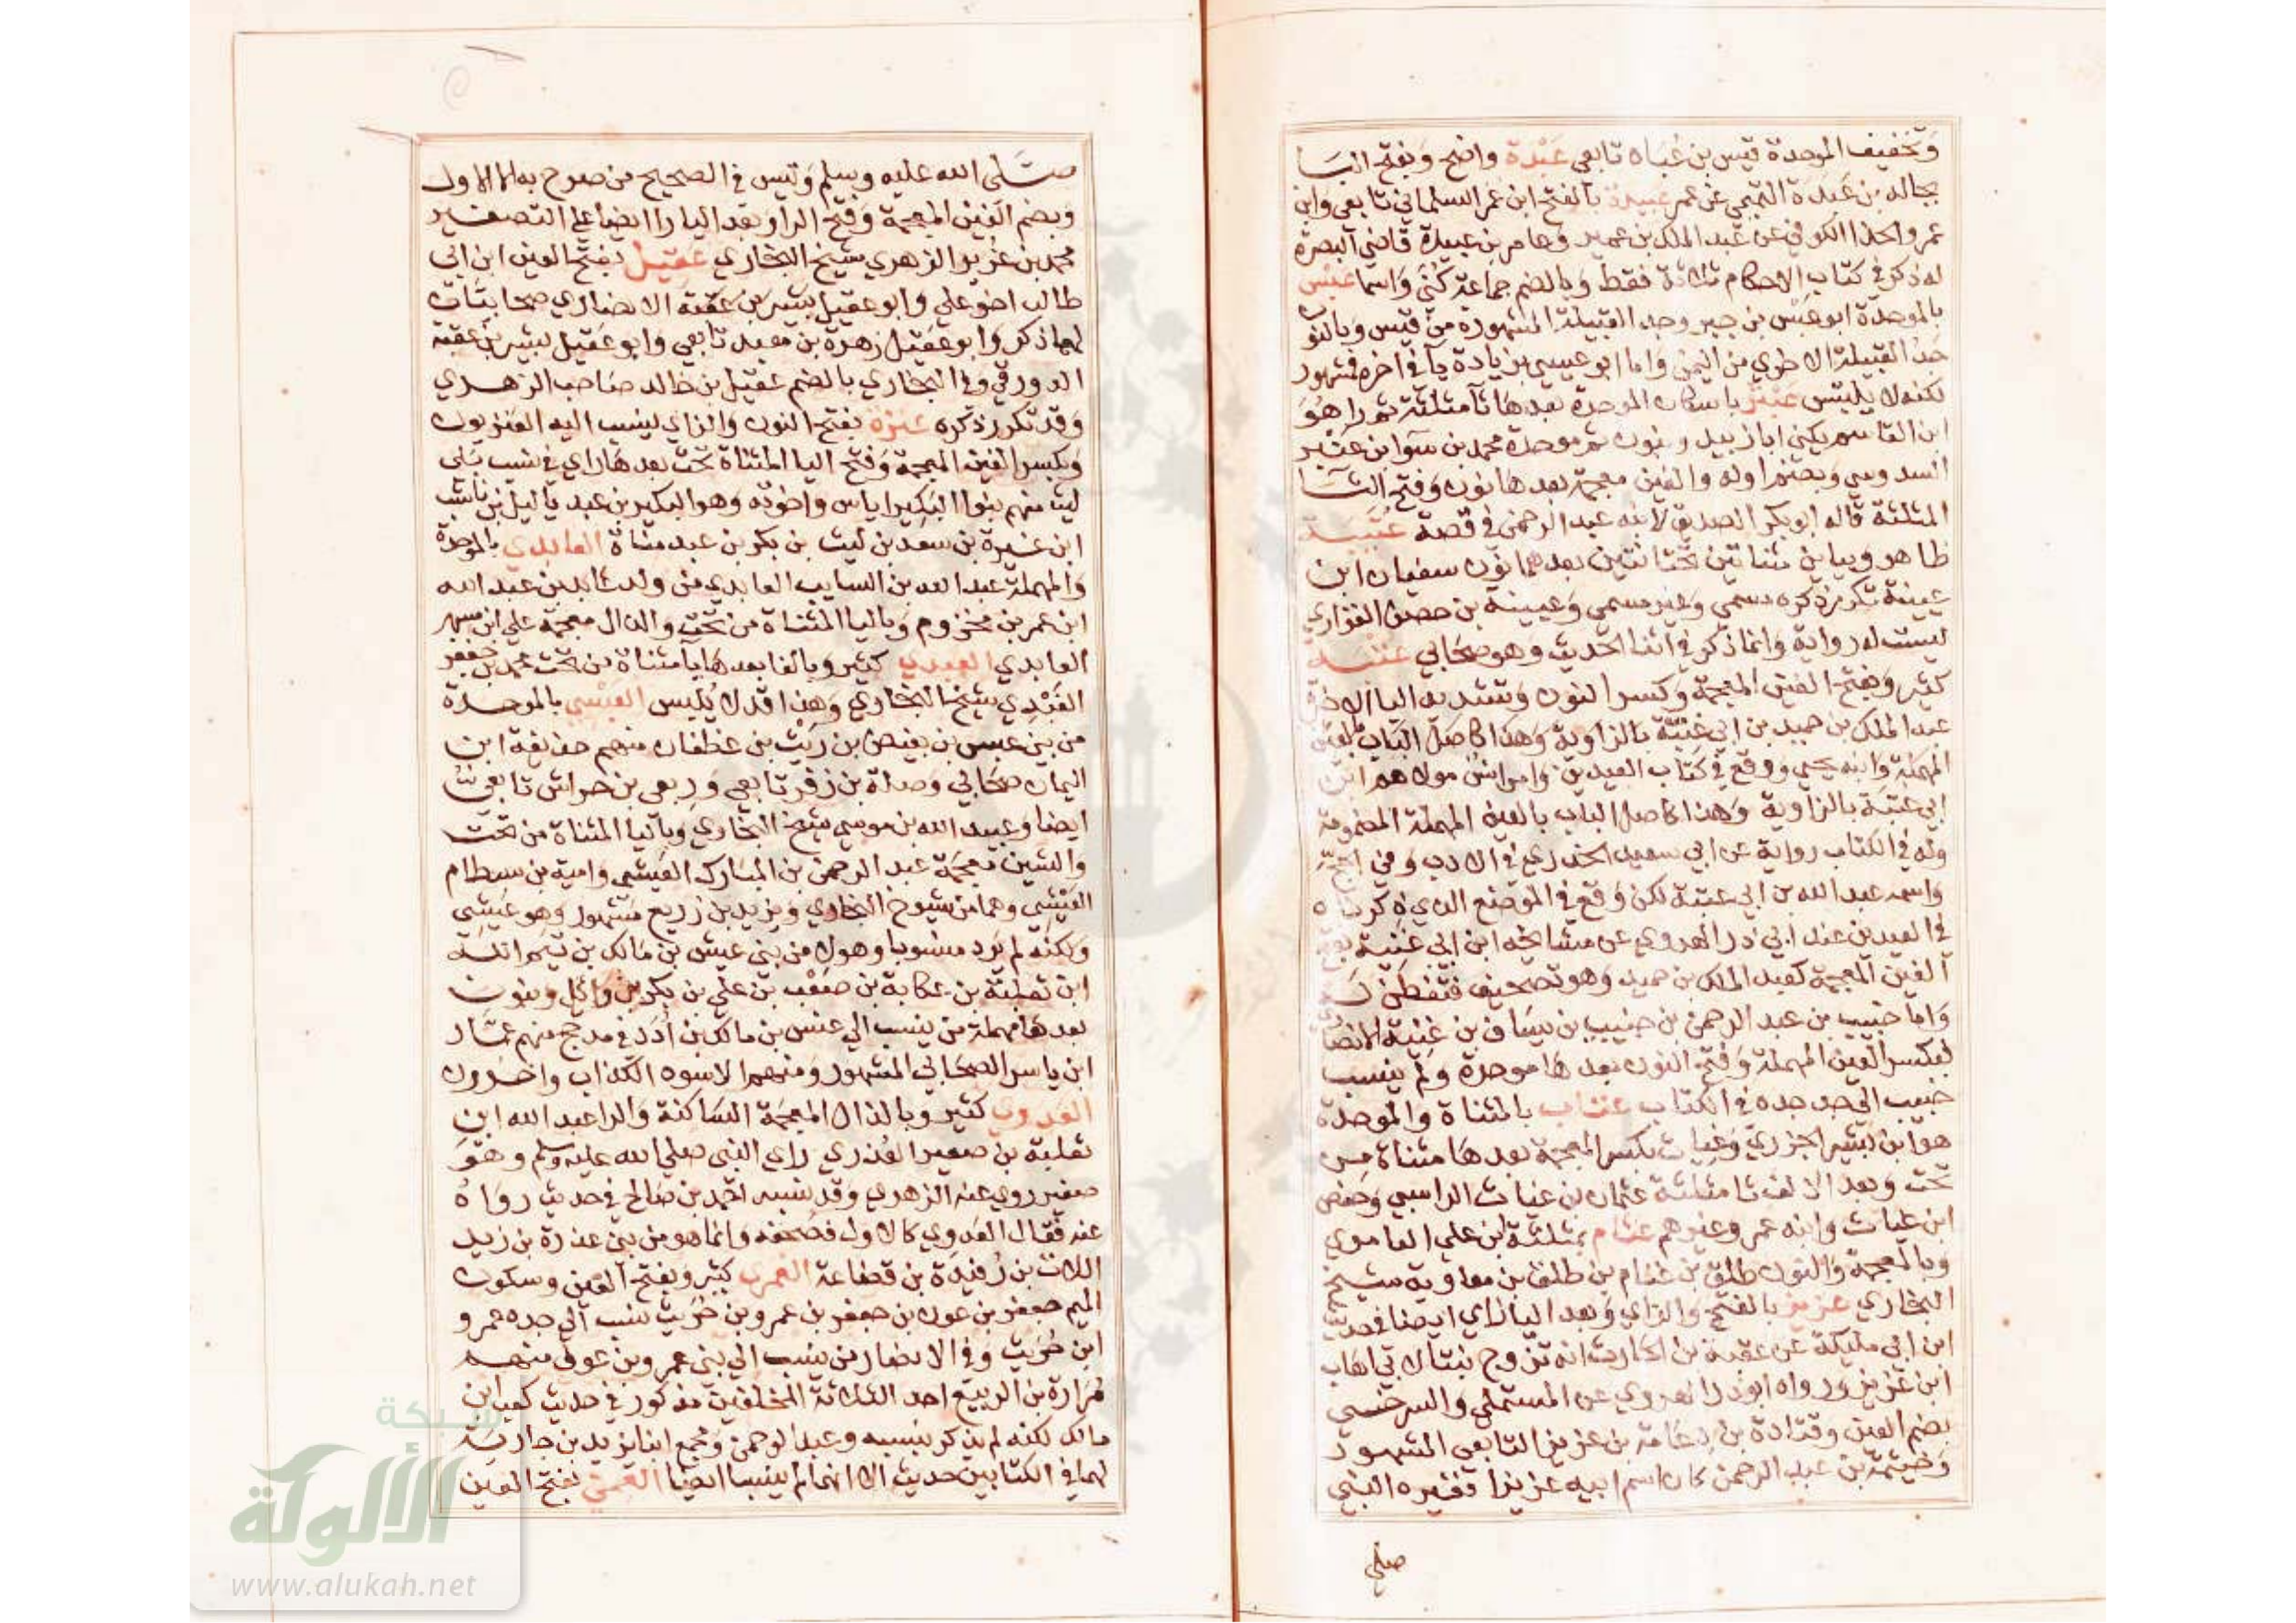 وتخفيف الموحدة قيس بن عباد تابعي عبدة واضح وبفتح البا
بجالة بن عبدة التميمي عن عمر عبيدة بالفتح ابن عمر السلماني تابعي وابن
عمرو الحذا الكوفي عن عبد الملك بن عمير وعامر بن عبيدة قاضي البصرة
له ذكر في كتاب الاحكام ثلاثة فقط وبالضم جماعة كنى واسما عبس
بالموحدة ابو عبس بن جبر وجد القبيلة المشهورة من قيس وبالنون
جد القبيلة الاخرى من اليمن واما ابو عيسى بزيادة يا في اخره فمشهور
لكنه لا يلبس عبثر باسكان الموحدة بعدها ثا مثلثة ثم را هو
ابن القاسم يكنى ابا زبيد وبنون ثم موحدة محمد بن سوا بن عنبر
السدوسي وبضم اوله والغين معجمة بعدها نون وفتح الثا
المثلثة قاله ابو بكر الصديق لابنه عبد الرحمن في قصة عتيبة
ظاهر وبيا بن مثناتين تحتانتين بعدهما نون سفيان ابن
عيينة تكرر ذكره مسمى وغير مسمى وعيينة بن حصن الفزاري
ليست له رواية وانما ذكر في اثنا الحديث وهو صحابي عتبة
كثير وبفتح الغين المعجمة وكسر النون وتشديد اليا الاخرة
عبد الملك بن حميد بن ابي غنية بالزاوية وهذا كاصل الباب بالعين
المهملة وابنه يحيى ووقع في كتاب العيدين وامر انس مولاهم ابن
ابي عتبة بالزاوية وهذا كاصل الباب بالعين المهملة المضمومة
وله في الكتاب رواية عن ابي سعيد الخدري في الادب وفي الحج
واسمه عبد الله بن ابي عتبة لكن وقع في الموضع الذي ذكرناه
في العيدين عند ابي ذر الهروي عن مشايخه ابن ابي غنية بفتح
الغين المعجمة كعبد الملك بن حميد وهو تصحيف فتفطن له
واما خبيب بن عبد الرحمن بن خبيب بن يساف بن عنبة الانصاري
فبكسر العين المهملة وفتح النون بعدها موحدة ولم ينسب
خبيب الى جد جده في الكتاب عتاب بالمثناة والموحدة
هو ابن بشير الجزري وغياث بكسر المعجمة بعدها مثناة من
تحت وبعد الالف ثا مثلثة عثمان بن غياث الراسبي وحفص
ابن غياث وابنه عمر وغيرهم عثام بمثلثة ابن علي العامري
وبالمعجمة والنون طلق بن غنام بن طلق بن معاوية شيخ
البخاري عزيز بالفتح والزاي وبعد اليا زاي ايضا في حديث
ابن ابي مليكة عن عقبة بن الحارث انه تزوج بنتا لابي اهاب
ابن عزيز ورواه ابو ذر الهروي عن المستملي والسرخسي
بضم العين وقتادة بن دعامة بن عزيز التابعي المشهور
وخيثمة بن عبد الرحمن كان اسم ابيه عزيزا فغيره النبي
صلى
صلى الله عليه وسلم وليس في الصحيح من صرح به الا الاول
وبضم الغين المعجمة وفتح الرا وبعد اليا را ايضا على التصغير
محمد بن غرير الزهري شيخ البخاري عقيل بفتح العين ابن ابي
طالب اخو علي وابو عقيل بشير بن عقبة الانصاري صحابيان
لهما ذكر وابو عقيل زهرة بن معبد تابعي وابو عقيل بشير بن عقبة
الدورقي وفي البخاري بالضم عقيل بن خالد صاحب الزهري
وقد تكرر ذكره عنزة بفتح النون والزاي ينسب اليه العنزيون
وبكسر الغين المعجمة وفتح اليا المثناة تحت بعدها راي في نسب بني
ليث منهم بنوا البكير اياس واخوته وهو البكير بن عبد ياليل بن ناشب
ابن غيرة بن سعد بن ليث بن بكر بن عبد مناة العابدي بالموحدة
والمهملة عبد الله بن السايب العابدي من ولد عابد بن عبد الله
ابن عمر بن مخزوم وباليا المثناة من تحت والذال معجمة علي ابن مسهر
العابدي العبدي كثير وبالفا بعدها يا مثناة من تحت محمد بن جعفر
الفيدي شيخ البخاري وهذا قد لا يلبس العبسي بالموحدة
من بني عبس بن بغيض بن ريث بن غطفان منهم حذيفة ابن
اليمان صحابي وصلة بن زفر تابعي وربعي بن حراش تابعي
ايضا وعبيد الله بن موسى شيخ البخاري وباليا المثناة من تحت
والشين معجمة عبد الرحمن بن المبارك العيشي وامية بن بسطام
العيشي وهما من شيوخ البخاري ويزيد بن زريع مشهور وهو عيشي
ولكنه لم يرد منسوبا وهولا من بني عيش بن مالك بن تيم الله
ابن ثعلبة بن عكابة بن صعب بن علي بن بكر بن وائل وبنون
بعدها مهملة من ينسب الى عنس بن مالك بن أدد في مذحج منهم عمار
ابن ياسر الصحابي المشهور ومنهم الاسود الكذاب واخرون
العدوي كثير وبالذال المعجمة الساكنة والرا عبد الله ابن
ثعلبة بن صعير العذري راى النبي صلى الله عليه وسلم وهو
صغير روى عنه الزهري وقد نسبه احمد بن صالح في حديث رواه
عنه فقال العدوي كالاول فصحفه وانما هو من بني عذرة بن زيد
اللات بن رفيدة بن قضاعة العمري كثير وبفتح العين وسكون
الميم جعفر بن عون بن جعفر بن عمرو بن حريث نسب الى جده عمرو
ابن حريث وفي الانصار من ينسب الى بني عمرو بن عوف منهم
مرارة بن الربيع احد الثلاثة المخلفين مذكور في حديث كعب ابن
مالك لكنه لم يذكر بنسبه وعبد الرحمن ومجمع ابنا يزيد بن جارية
لهما في الكتابين حديث الا انهما لم ينسبا ايضا العمي بفتح العين
شبكة
الألوكة
www.alukah.net